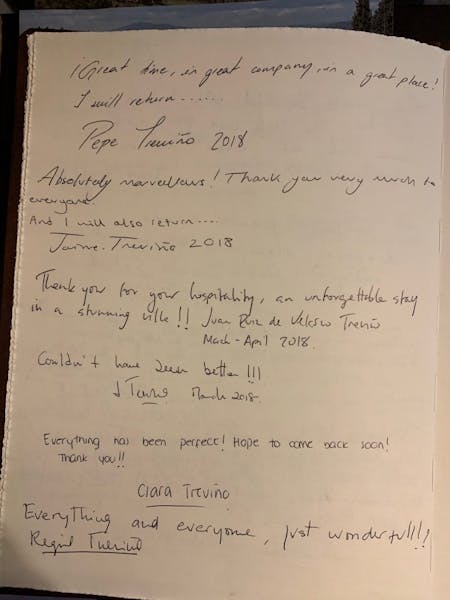 ¡Great time, in great company, in a great place!
I will return......
Pepe Treviño 2018
Absolutely marvellous! Thank you very much to
everyone
And I will also return....
Jaime Treviño 2018
Thank you for your hospitality, an unforgettable stay
in a stunning ville!! Juan Ruiz de Velasco Treviño
March-April 2018.
Couldn't have been better!!!
March 2018.
Everything has been perfect! Hope to come back soon!
Thank you!!
Clara Treviño
Everything and everyone, just wonderful!!!!
Treviño